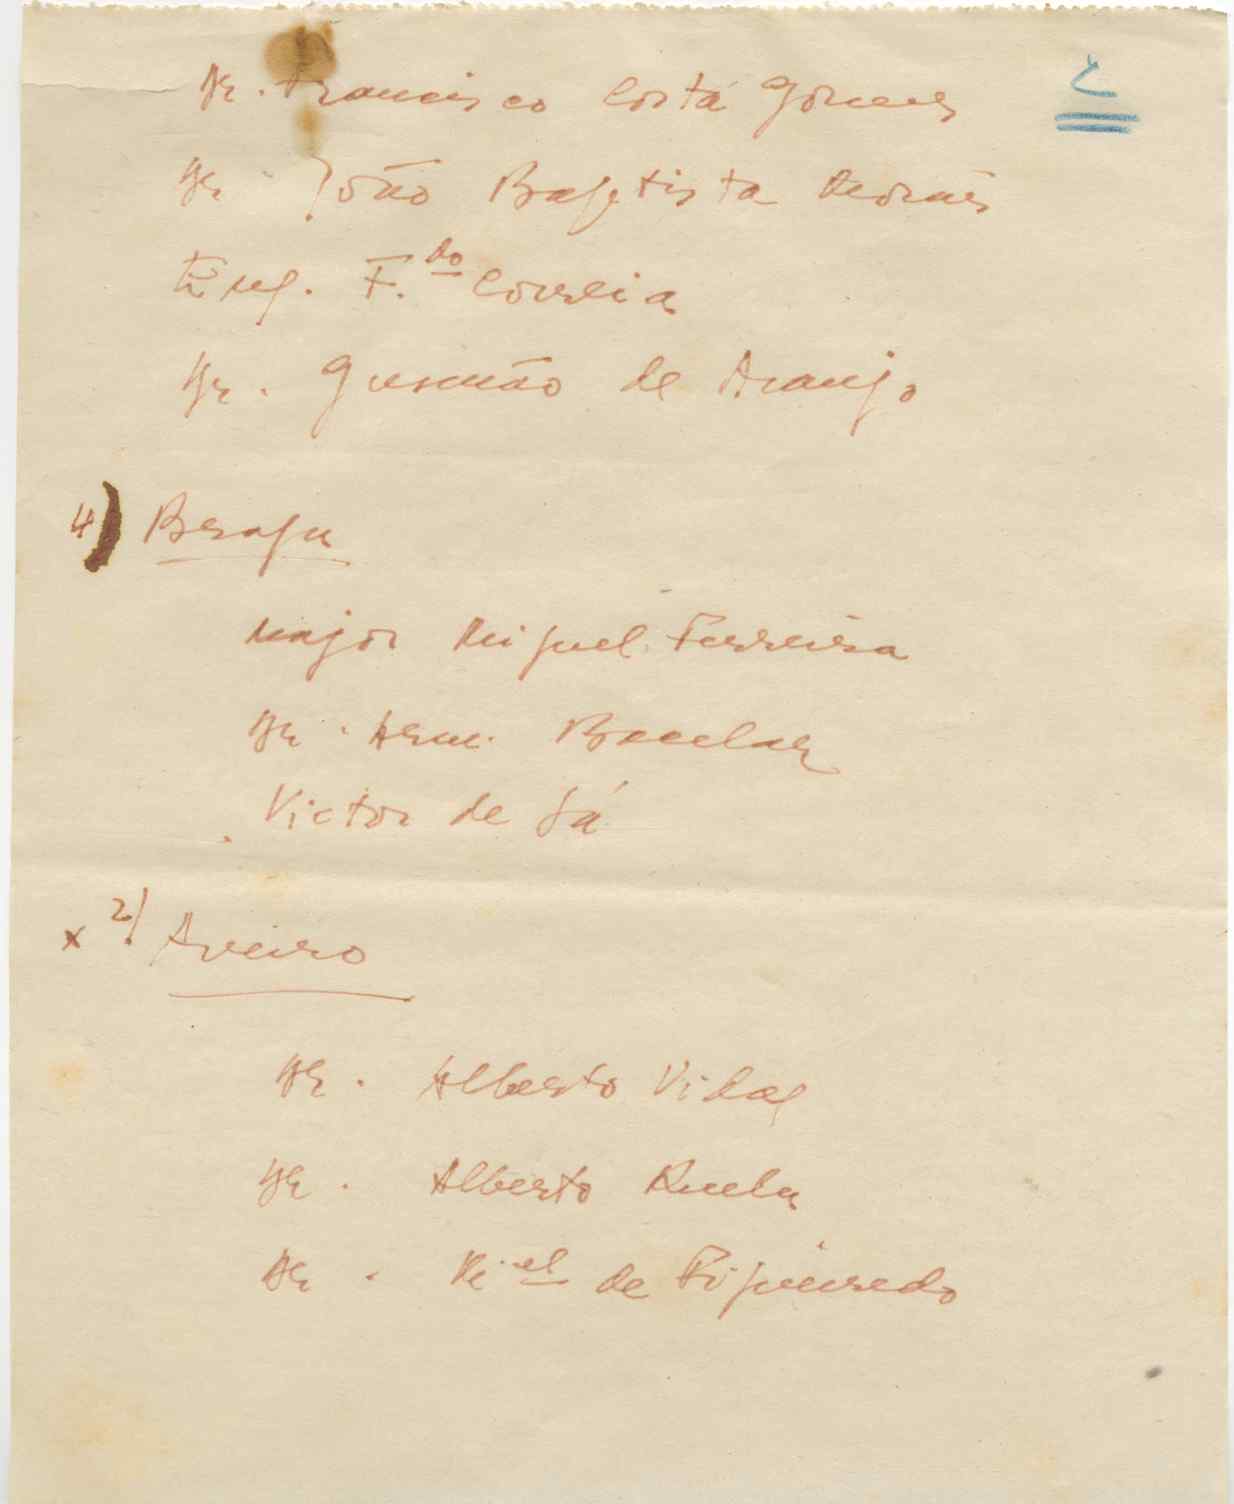 2
Dr. Francisco Costa Gomes
Dr. João Baptista Morais
Eng. F.do Correia
Dr. Gusmão de Araujo
4) Braga
Major Miguel Ferreira
Dr. Arm. Bacelar
Victor de Sá
x 2) Aveiro
Dr. Alberto Vidal
Dr. Alberto Ruela
Dr. M.el de Figueiredo